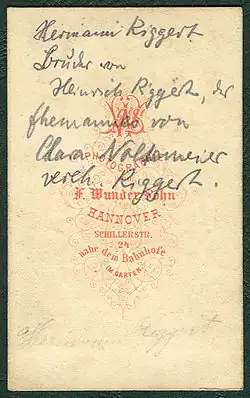 Hermann Riggert
Bruder von
Heinrich Riggert, der
Ehemannes von
Clara Noltemeier
verh. Riggert.
PHOTOGRAPHIE
F. Wunder Sohn
HANNOVER
SCHILLERSTR.
24
nahe dem Bahnhofe
IM GARTEN.
Hermann Riggert